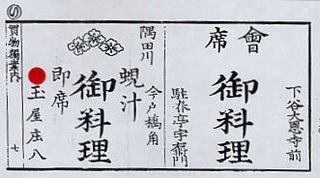 下谷大恩寺前
會席
御料理
駐春亭宇右衛門
隅田川
今戸橋角
蜆汁
御料理
即席
玉屋庄八
買物獨案内
七